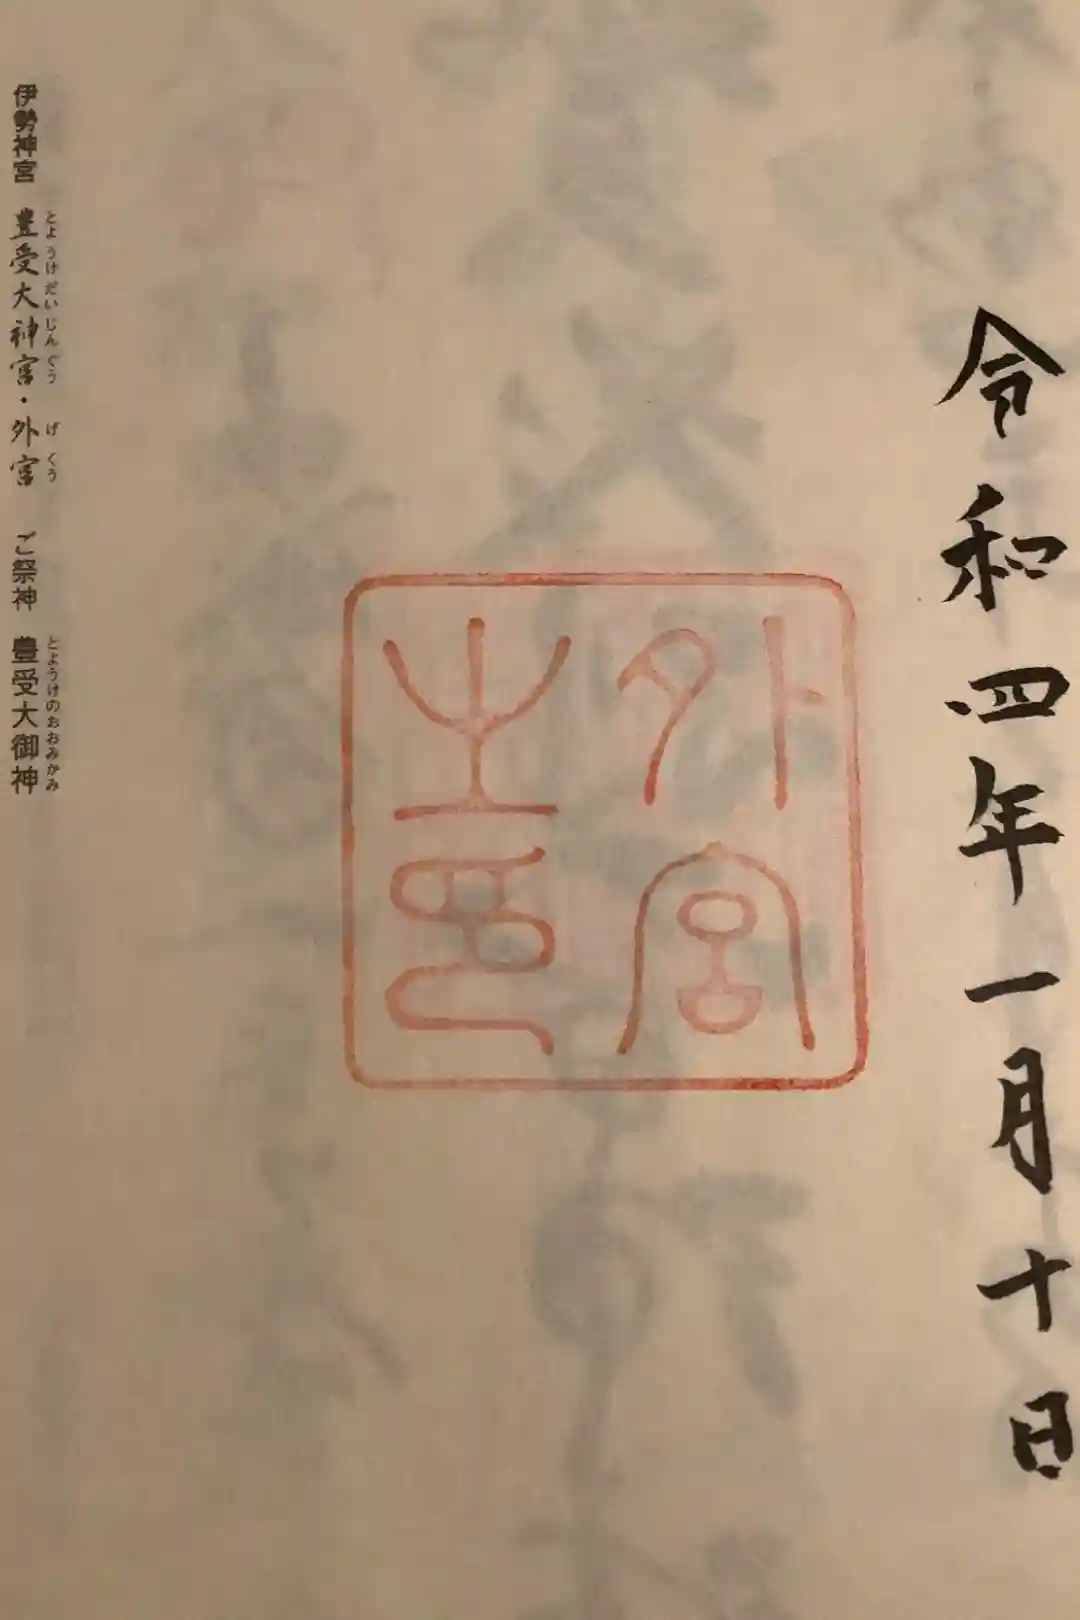 令和四年一月十日
外宮
之印
とようけだいじんぐう げくう とようけのおおみかみ
伊勢神宮 豊受大神宮・外宮 ご祭神 豊受大御神